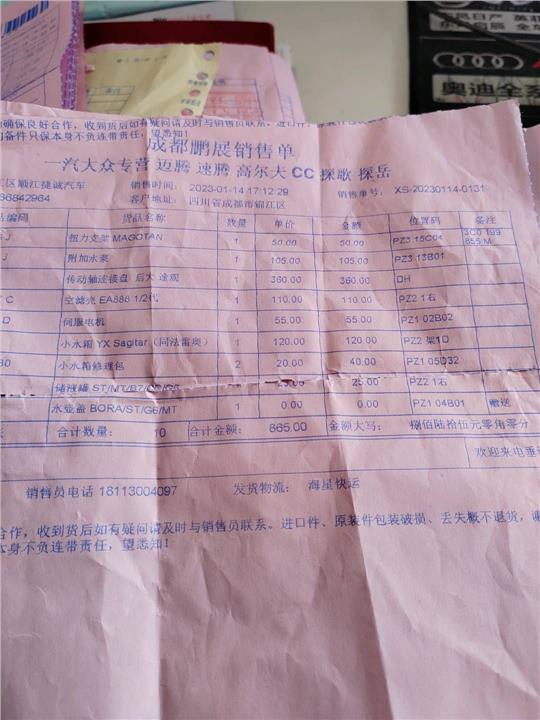 奥迪全系
确保良好合作，收到货后如有疑问请及时与销售员联系。进口件、
备件只保本身不负连带责任，望悉知！
成都鹏展销售单
一汽大众专营 迈腾 速腾 高尔夫 CC 探歌 探岳
区顺江捷诚汽车 销售时间： 2023-01-14 17:12:29 销售单号： XS-20230114-0131
66842964 客户地址： 四川省成都市锦江区
品编码 货品名称 数量 单价 金额 位置码 备注
J 扭力支架 MAGOTAN 1 50.00 50.00 PZ3 15C04 3C0 199 855 M
J 附加水泵 1 105.00 105.00 PZ3 13B01
传动轴连接盘 后大 途观 1 360.00 360.00 DH
C 空滤壳 EA888 1/2代 1 110.00 110.00 PZ2 1右
D 伺服电机 1 55.00 55.00 PZ1 02B02
小水箱 YX Sagitar（同法雷奥） 1 120.00 120.00 PZ2 架1D
B0 小水箱修理包 2 20.00 40.00 PZ1 05D32
储液罐 ST/MT/B7/ 25.00 25.00 PZ2 1右
水壶盖 BORA/ST/G6/MT 1 0.00 0.00 PZ1 04B01 赠送
合计数量： 10 合计金额： 865.00 金额大写： 捌佰陆拾伍元零角零分
欢迎来电
销售员电话 18113004097 发货物流： 海星快运
合作，收到货后如有疑问请及时与销售员联系。进口件、原装件包装破损、丢失概不退货，谢
本身不负连带责任，望悉知！